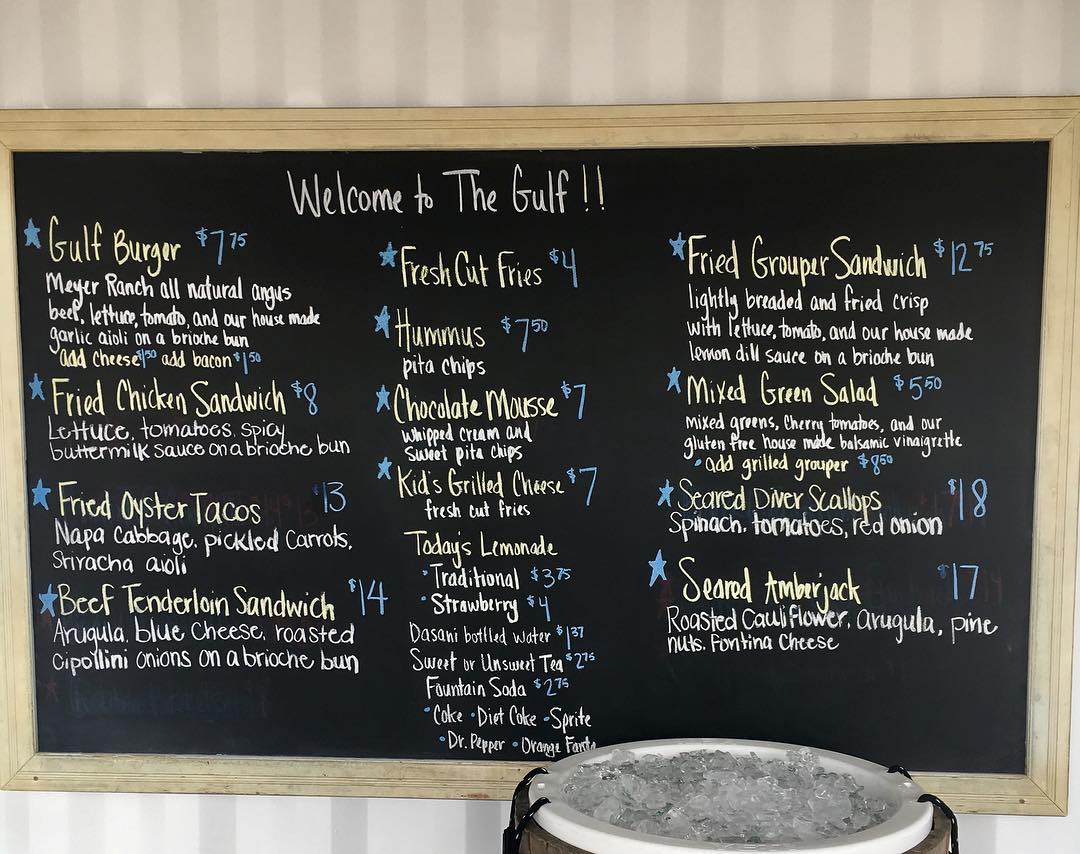 Welcome to The Gulf !!
Gulf Burger $7 75
Meyer Ranch all natural angus
beef, lettuce, tomato, and our house made
garlic aioli on a brioche bun
add cheese $1 50 add bacon $1 50
Fried Chicken Sandwich $8
Lettuce, tomatoes, spicy
buttermilk sauce on a brioche bun
Fried Oyster Tacos $13
Napa Cabbage, pickled Carrots,
Sriracha aioli
Beef Tenderloin Sandwich $14
Arugula, blue cheese, roasted
cipollini onions on a brioche bun
Fresh Cut Fries $4
Hummus $7 50
pita chips
Chocolate Mousse $7
whipped cream and
sweet pita chips
Kid's Grilled Cheese $7
fresh cut fries
Today's Lemonade
• Traditional $3 75
• Strawberry $4
Dasani bottled water $1 37
Sweet or Unsweet Tea $2 75
Fountain Soda $2 75
• Coke • Diet Coke • Sprite
• Dr. Pepper • Orange Fanta
Fried Grouper Sandwich $12 75
lightly breaded and fried crisp
with lettuce, tomato, and our house made
lemon dill sauce on a brioche bun
Mixed Green Salad $5 50
mixed greens, cherry tomatoes, and our
gluten free house made balsamic vinaigrette
• add grilled grouper $8 50
Seared Diver Scallops $18
Spinach, tomatoes, red onion
Seared Amberjack $17
Roasted Cauliflower, arugula, pine
nuts, Fontina Cheese